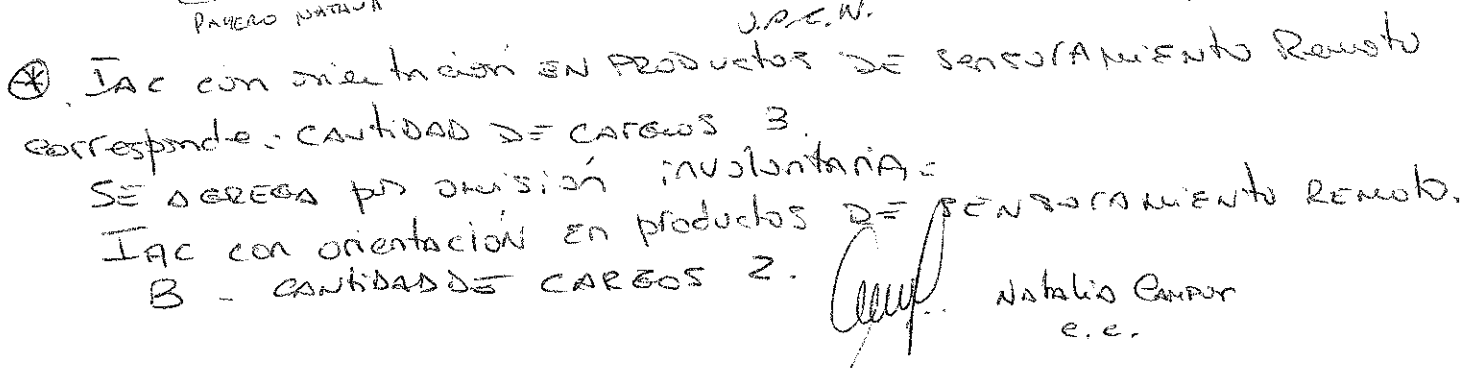 PAYERO NATALIA
U.P.C.N.
⊛. IAC con orientación EN PRODUctos DE SenSorAMiENto Remoto
corresponde: CANtiDAD DE CARGOS 3.
SE AGREGA por omisión involuntaria=
IAC con orientación En productos DE SENSorAMiENto REmoto.
B - CANtiDAD DE CARGOS 2.
Natalia
e.e.